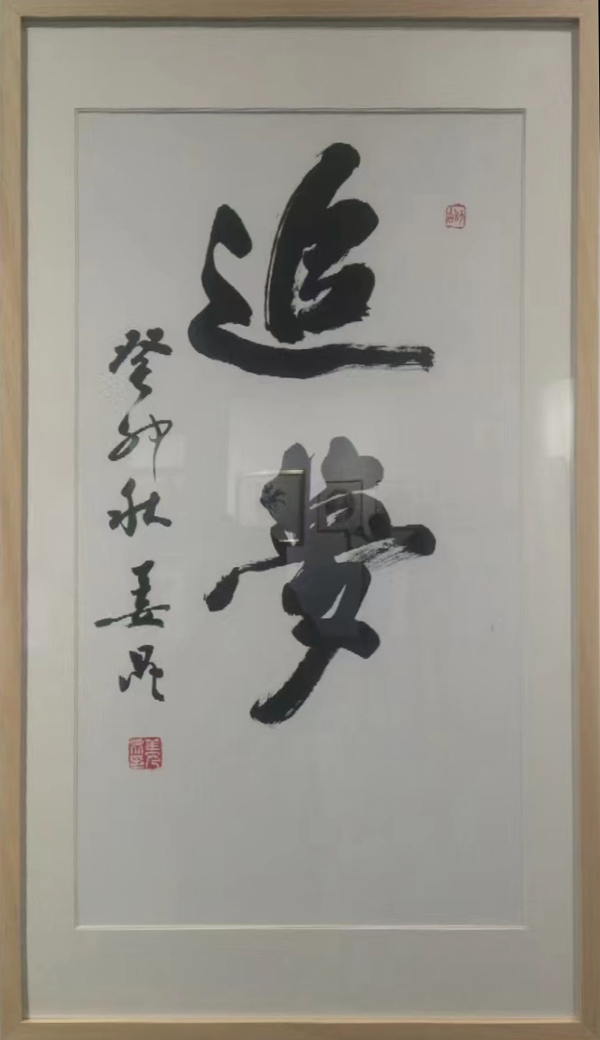 追夢
癸卯秋 姜昆